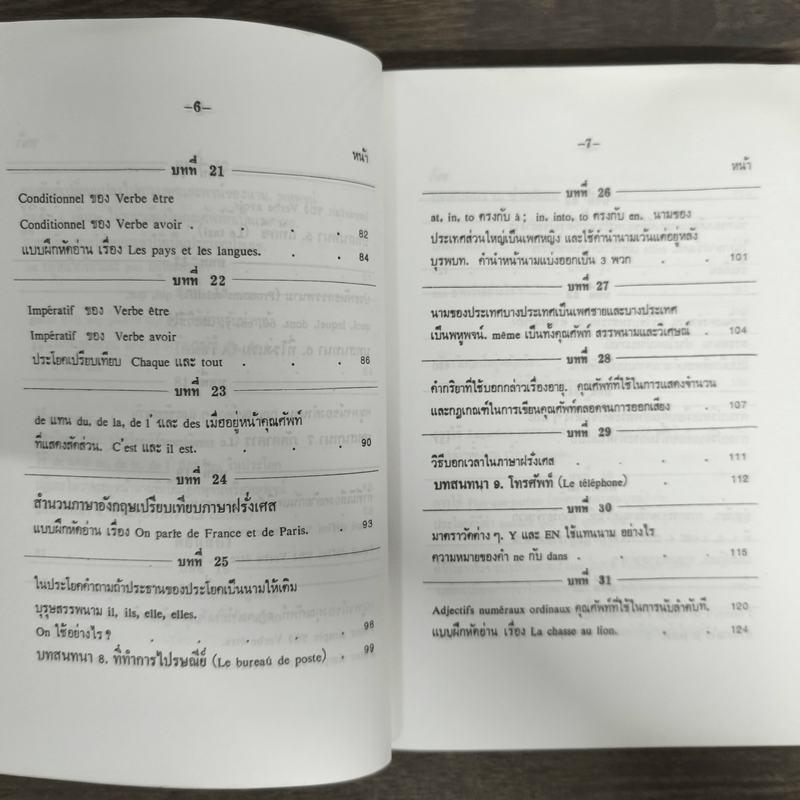 –6–
หน้า
บทที่ 21
Conditionnel ของ Verbe être
Conditionnel ของ Verbe avoir . . . . 82
แบบฝึกหัดอ่าน เรื่อง Les pays et les langues. . . 84
บทที่ 22
Impératif ของ Verbe être
Impératif ของ Verbe avoir
ประโยคเปรียบเทียบ Chaque และ tout . . . 86
บทที่ 23
de แทน du, de la, de l' และ des เมื่ออยู่หน้าคุณศัพท์
ที่แสดงสัดส่วน. C'est และ il est. . . . 90
บทที่ 24
สำนวนภาษาอังกฤษเปรียบเทียบภาษาฝรั่งเศส
แบบฝึกหัดอ่าน เรื่อง On parle de France et de Paris. . 93
บทที่ 25
ในประโยคคำถามถ้าประธานของประโยคเป็นนามให้เติม
บุรุษสรรพนาม il, ils, elle, elles.
On ใช้อย่างไร ? . . . . . 98
บทสนทนา 8. ที่ทำการไปรษณีย์ (Le bureaú de poste) . 99
–7–
หน้า
บทที่ 26
at, in, to ตรงกับ à ; in, into, to ตรงกับ en. นามของ
ประเทศส่วนใหญ่เป็นเพศหญิง และใช้คำนำนามเว้นแต่อยู่หลัง
บุรพบท. คำนำหน้านามแบ่งออกเป็น 3 พวก . . 101
บทที่ 27
นามของประเทศบางประเทศเป็นเพศชายและบางประเทศ
เป็นพหูพจน์. même เป็นทั้งคุณศัพท์ สรรพนามและวิเศษณ์ . 104
บทที่ 28
คำกริยาที่ใช้บอกกล่าวเรื่องอายุ. คุณศัพท์ที่ใช้ในการแสดงจำนวน
และกฎเกณฑ์ในการเขียนคุณศัพท์ตลอดจนการออกเสียง . 107
บทที่ 29
วิธีบอกเวลาในภาษาฝรั่งเศส . . . . 111
บทสนทนา 9. โทรศัพท์ (Le téléphone) . . 112
บทที่ 30
มาตราวัดต่าง ๆ. Y และ EN ใช้แทนนาม อย่างไร
ความหมายของคำ ne กับ dans . . . . 115
บทที่ 31
Adjectifs numéraux ordinaux คุณศัพท์ที่ใช้ในการนับลำดับที่. 120
แบบฝึกหัดอ่าน เรื่อง La chasse au lion. . . 124